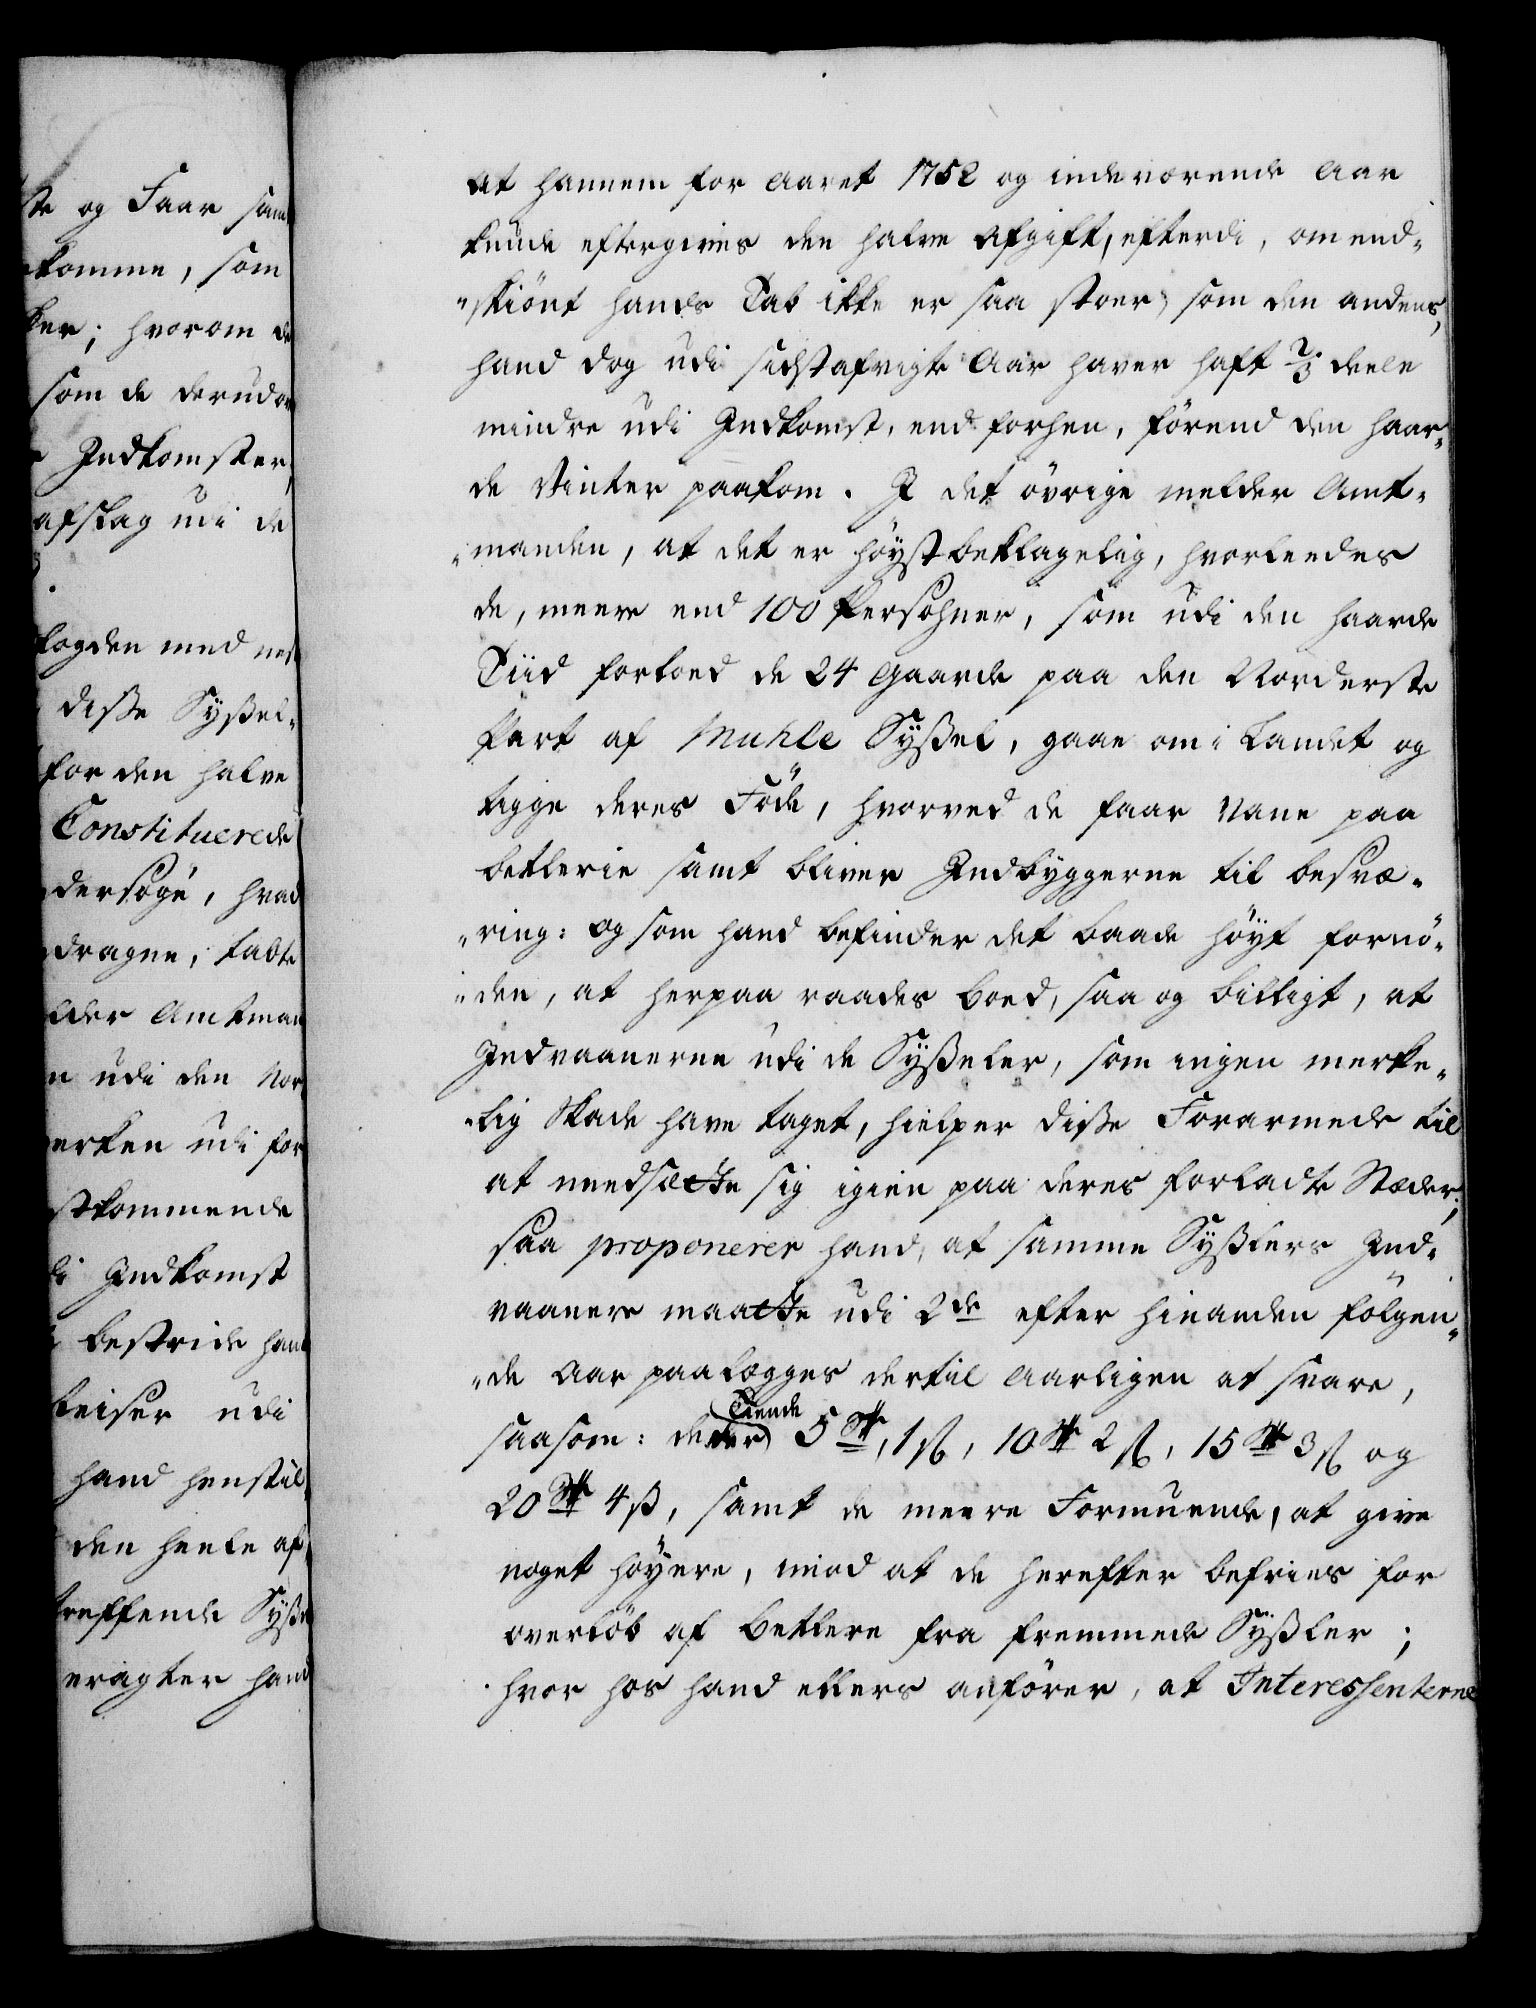 ste og Faar sam
komme, som
ker; hvorom de
som de derudov
Indkomster,
afslag udi de
fogden med nest
disse Syßel-
for den halve
Constituerede
dersøge, hvad
dragne, tabte
lder Amtman
n udi den Nor
erken udi for
stkommende
di Indkomst
bestride hans
Reiser udi
hand henstil
den heele af
treffende Syße
eragter hand
at hannem for Aaret 1752 og indeværende Aar
kunde eftergives den halve Afgift, efterdi, om end-
-skiönt hands Tab ikke er saa stoer, som den andens,
hand dog udi sidstafvigte Aar haver haft 2/3 deele
mindre udi Indkomst, end forhen, förend den haar-
de Vinter paakom. I det övrige melder Amt-
-manden, at det er höyst beklagelig, hvorledes
de, meere end 100 Persohner, som udi den haarde
Tiid forloed de 24 Gaarde paa den Norderste
Part af Muhle Syßel, gaae om i Landet og
tigge deres Föde, hvorved de faar Vane paa
betlerie samt bliver Indbyggerne til besvæ-
-ring: og som hand befinder det baade höyt fornö-
-den, at herpaa raades boed, saa og billigt, at
Indvaanerne udi de Syßeler, som ingen merke-
-lig Skade have taget, hielper diße Forarmede til
at needsætte sig igien paa deres forladte Stæder;
saa proponerer hand, at samme Syßlers Ind-
vaanere maatte udi 2de efter hinanden fölgen-
-de Aar paalægges dertil Aarligen at svare,
saasom: de der Tiende 5 Rdr, 1 ß, 10 Rdr 2 ß, 15 Rdr 3 ß og
20 Rdr 4 ß, samt de meere Formuende, at give
noget höyere, mod at de herefter befries for
overlöb af Betlere fra fremmede Syßler;
hvor hos hand ellers anförer, at Interessenterne